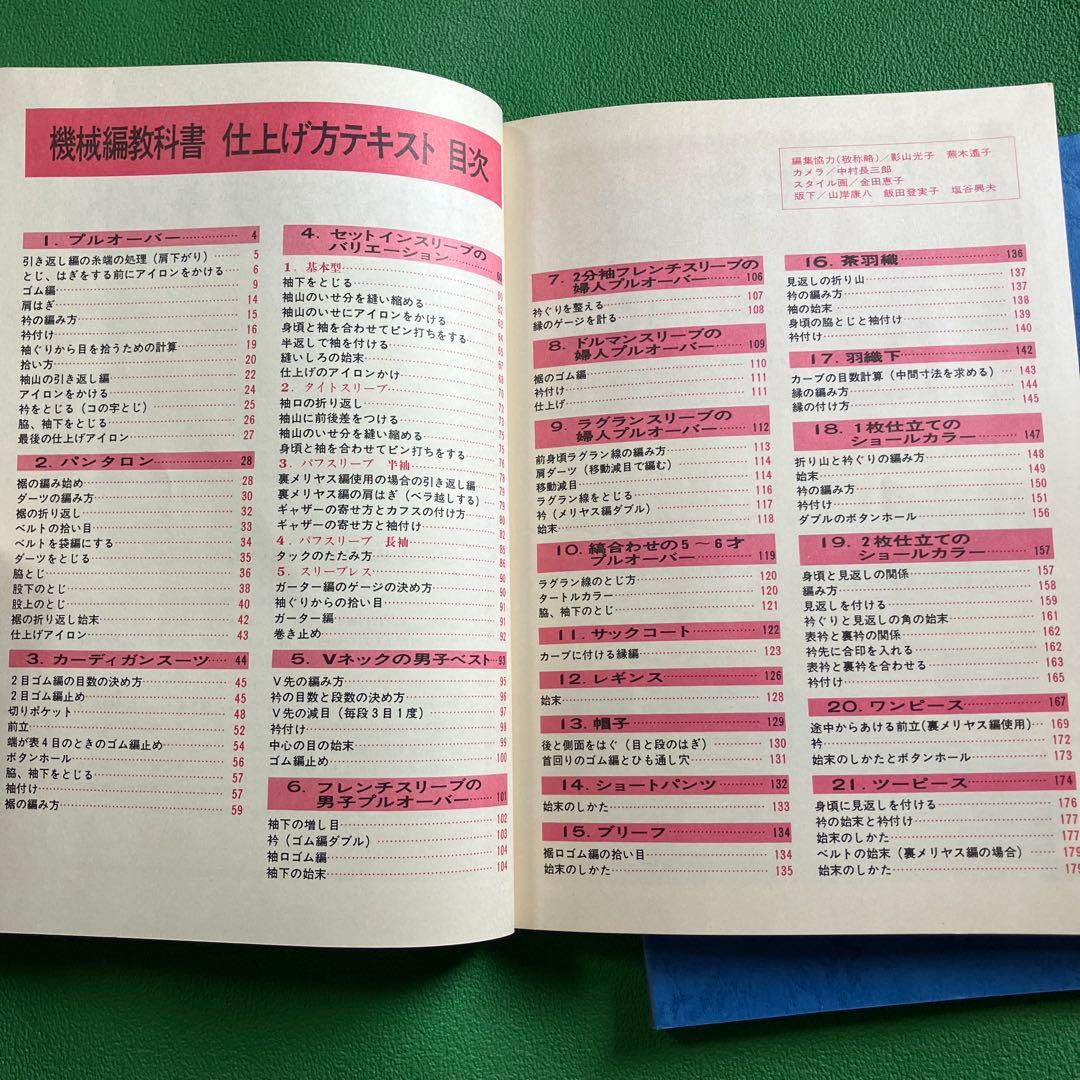 機械編教科書 仕上げ方テキスト 目次
1. プルオーバー 4
引き返し編の糸端の処理(肩下がり) 5
とじ、はぎをする前にアイロンをかける 6
ゴム編 9
肩はぎ 14
衿の編み方 15
衿付け 16
袖ぐりから目を拾うための計算 19
拾い方 20
袖山の引き返し編 22
アイロンをかける 24
衿をとじる(コの字とじ) 25
脇、袖下をとじる 26
最後の仕上げアイロン 27
2. パンタロン 28
裾の編み始め 28
ダーツの編み方 30
裾の折り返し 32
ベルトの拾い目 33
ベルトを袋編にする 34
ダーツをとじる 35
脇とじ 36
股下のとじ 38
股上のとじ 40
裾の折り返し始末 42
仕上げアイロン 43
3. カーディガンスーツ 44
2目ゴム編の目数の決め方 45
2目ゴム編止め 45
切りポケット 48
前立 52
端が表4目のときのゴム編止め 54
ボタンホール 56
脇、袖下をとじる 57
袖付け 57
裾の編み方 59
4. セットインスリーブの
バリエーション 60
1. 基本型 60
袖下をとじる 60
袖山のいせ分を縫い縮める 62
袖山のいせにアイロンをかける 64
身頃と袖を合わせてピン打ちをする 65
半返しで袖を付ける 66
縫いしろの始末 67
仕上げのアイロンかけ 68
2. タイトスリーブ 70
袖口の折り返し 72
袖山に前後差をつける 73
袖山のいせ分を縫い縮める 75
身頃と袖を合わせてピン打ちをする 75
3. パフスリーブ 半袖 76
裏メリヤス編使用の場合の引き返し編 78
裏メリヤス編の肩はぎ(ベラ越しする) 79
ギャザーの寄せ方とカフスの付け方 80
ギャザーの寄せ方と袖付け 82
4. パフスリーブ 長袖 85
タックのたたみ方 86
5. スリーブレス 90
ガーター編のゲージの決め方 90
袖ぐりからの拾い目 91
ガーター編 91
巻き止め 92
5. Vネックの男子ベスト 93
V先の編み方 95
衿の目数と段数の決め方 96
V先の減目(毎段3目1度) 97
衿付け 98
中心の目の始末 99
ゴム編止め 100
6. フレンチスリーブの
男子プルオーバー 101
袖下の増し目 102
衿(ゴム編ダブル) 103
袖口ゴム編 104
袖下の始末 104
編集協力(敬称略)/影山光子 蕪木遙子
カメラ/中村長三郎
スタイル画/金田恵子
版下/山岸康八 飯田登実子 塩谷興夫
7. 2分袖フレンチスリーブの
婦人プルオーバー 106
衿ぐりを整える 107
縁のゲージを計る 108
8. ドルマンスリーブの
婦人プルオーバー 109
裾のゴム編 110
衿付け 111
仕上げ 111
9. ラグランスリーブの
婦人プルオーバー 112
前身頃ラグラン線の編み方 113
肩ダーツ(移動減目で編む) 114
移動減目 114
ラグラン線をとじる 116
衿(メリヤス編ダブル) 117
始末 118
10. 縞合わせの5〜6才
プルオーバー 119
ラグラン線のとじ方 120
タートルカラー 120
脇、袖下のとじ 121
11. サックコート 122
カーブに付ける縁編 123
12. レギンス 126
始末 128
13. 帽子 129
後と側面をはぐ(目と段のはぎ) 130
首回りのゴム編とひも通し穴 131
14. ショートパンツ 132
始末のしかた 133
15. ブリーフ 134
裾口ゴム編の拾い目 134
始末のしかた 135
16. 茶羽織 136
見返しの折り山 137
衿の編み方 137
袖の始末 138
身頃の脇とじと袖付け 139
衿付け 140
17. 羽織下 142
カーブの目数計算(中間寸法を求める) 143
縁の編み方 144
縁の付け方 145
18. 1枚仕立ての
ショールカラー 147
折り山と衿ぐりの編み方 148
始末 149
衿の編み方 150
衿付け 151
ダブルのボタンホール 156
19. 2枚仕立ての
ショールカラー 157
身頃と見返しの関係 157
編み方 158
見返しを付ける 159
衿ぐりと見返しの角の始末 161
表衿と裏衿の関係 162
衿先に合印を入れる 162
表衿と裏衿を合わせる 163
衿付け 165
20. ワンピース 167
途中からあける前立(裏メリヤス編使用) 169
衿 172
始末のしかたとボタンホール 173
21. ツーピース 174
身頃に見返しを付ける 176
衿の始末と衿付け 177
始末のしかた 177
ベルトの始末(裏メリヤス編の場合) 179
始末のしかた 179